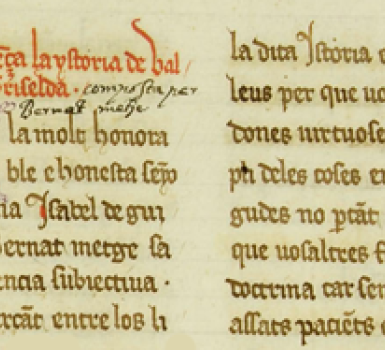 eça la ystoria de val/
riselda · composta per
Bernat metge
la molt honora
ble e honesta señyo
na Isabel de gui
ernat metge sa
encia subiectiua ·
rçāt entre los li
la dita Istoria
leus per que uo
dones uirtuose
ph deles coses e
gudes no ꝑtāt
que uosaltres
doctrina car sen
assats paciēts e